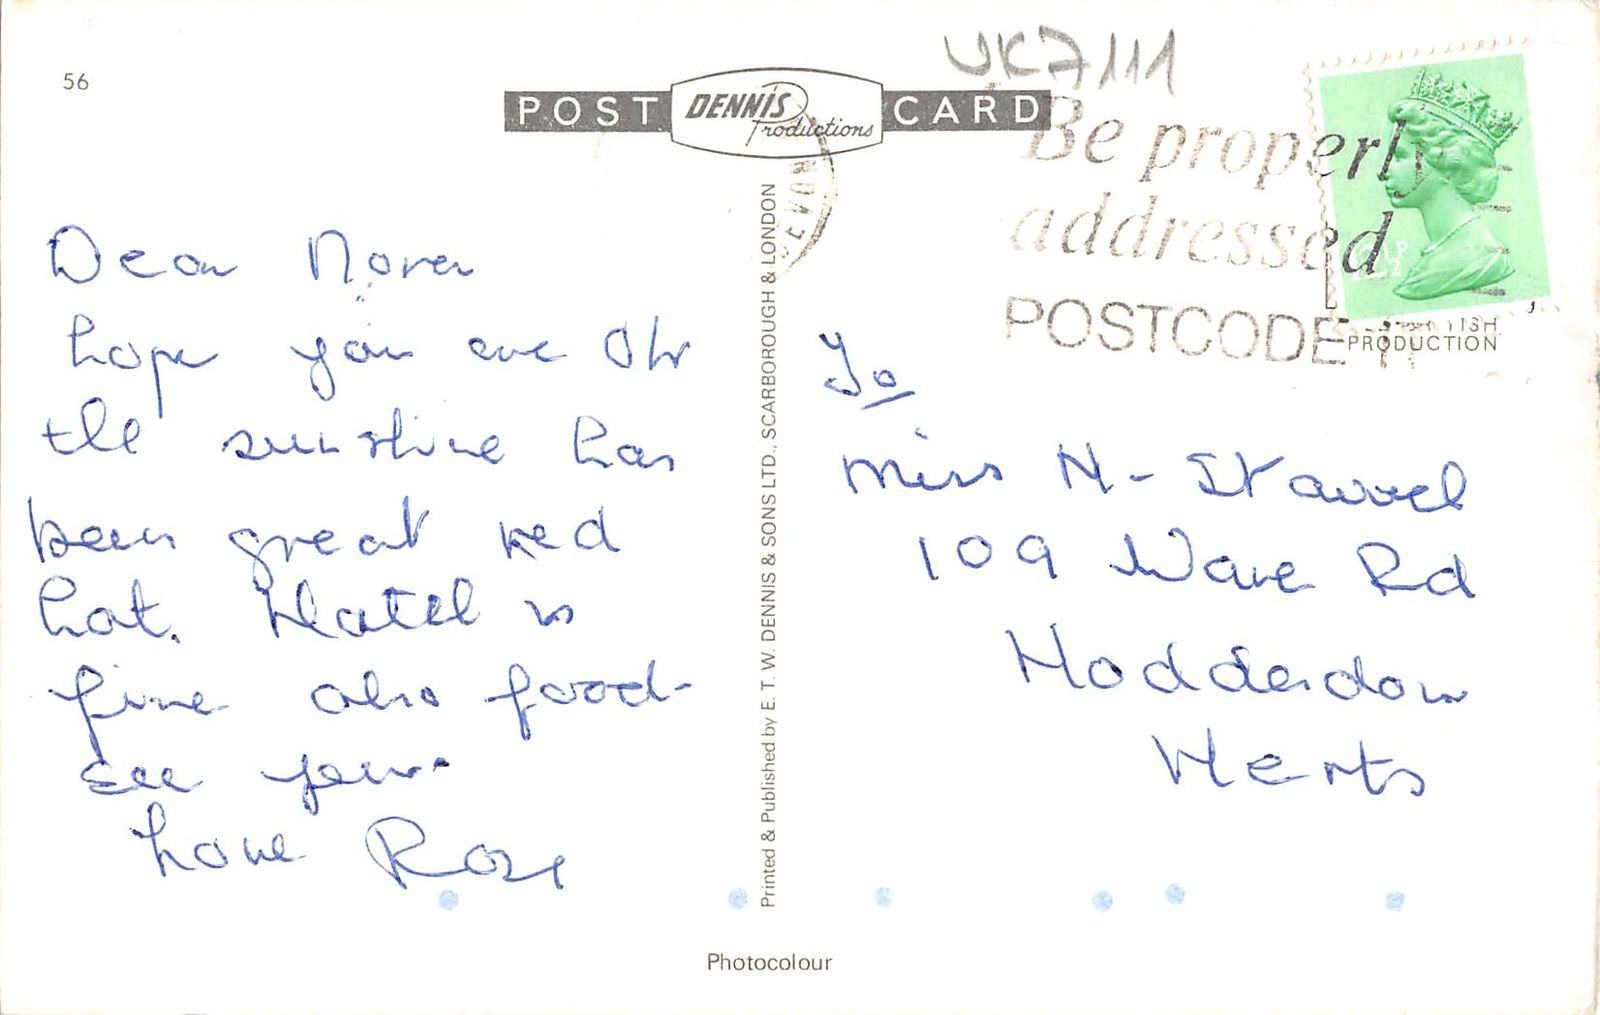 56
POST DENNIS Productions CARD
UK7111
Be properly
addressed
POSTCODE
PRODUCTION
EVON
Dear Nora
hope you are Ok
the sunshine has
been great red
hot. Hotel is
fine also food-
see you.
Love Rose
Printed & Published by E. T. W. DENNIS & SONS LTD., SCARBOROUGH & LONDON
To
Miss N-
109 Ware Rd
Hoddesdon
Herts
Photocolour